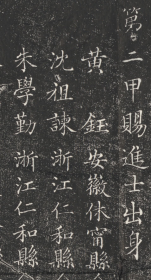 第二甲賜進士出身
黃鈺安徽休寗縣
沈祖諫浙江仁和縣
朱學勤浙江仁和縣